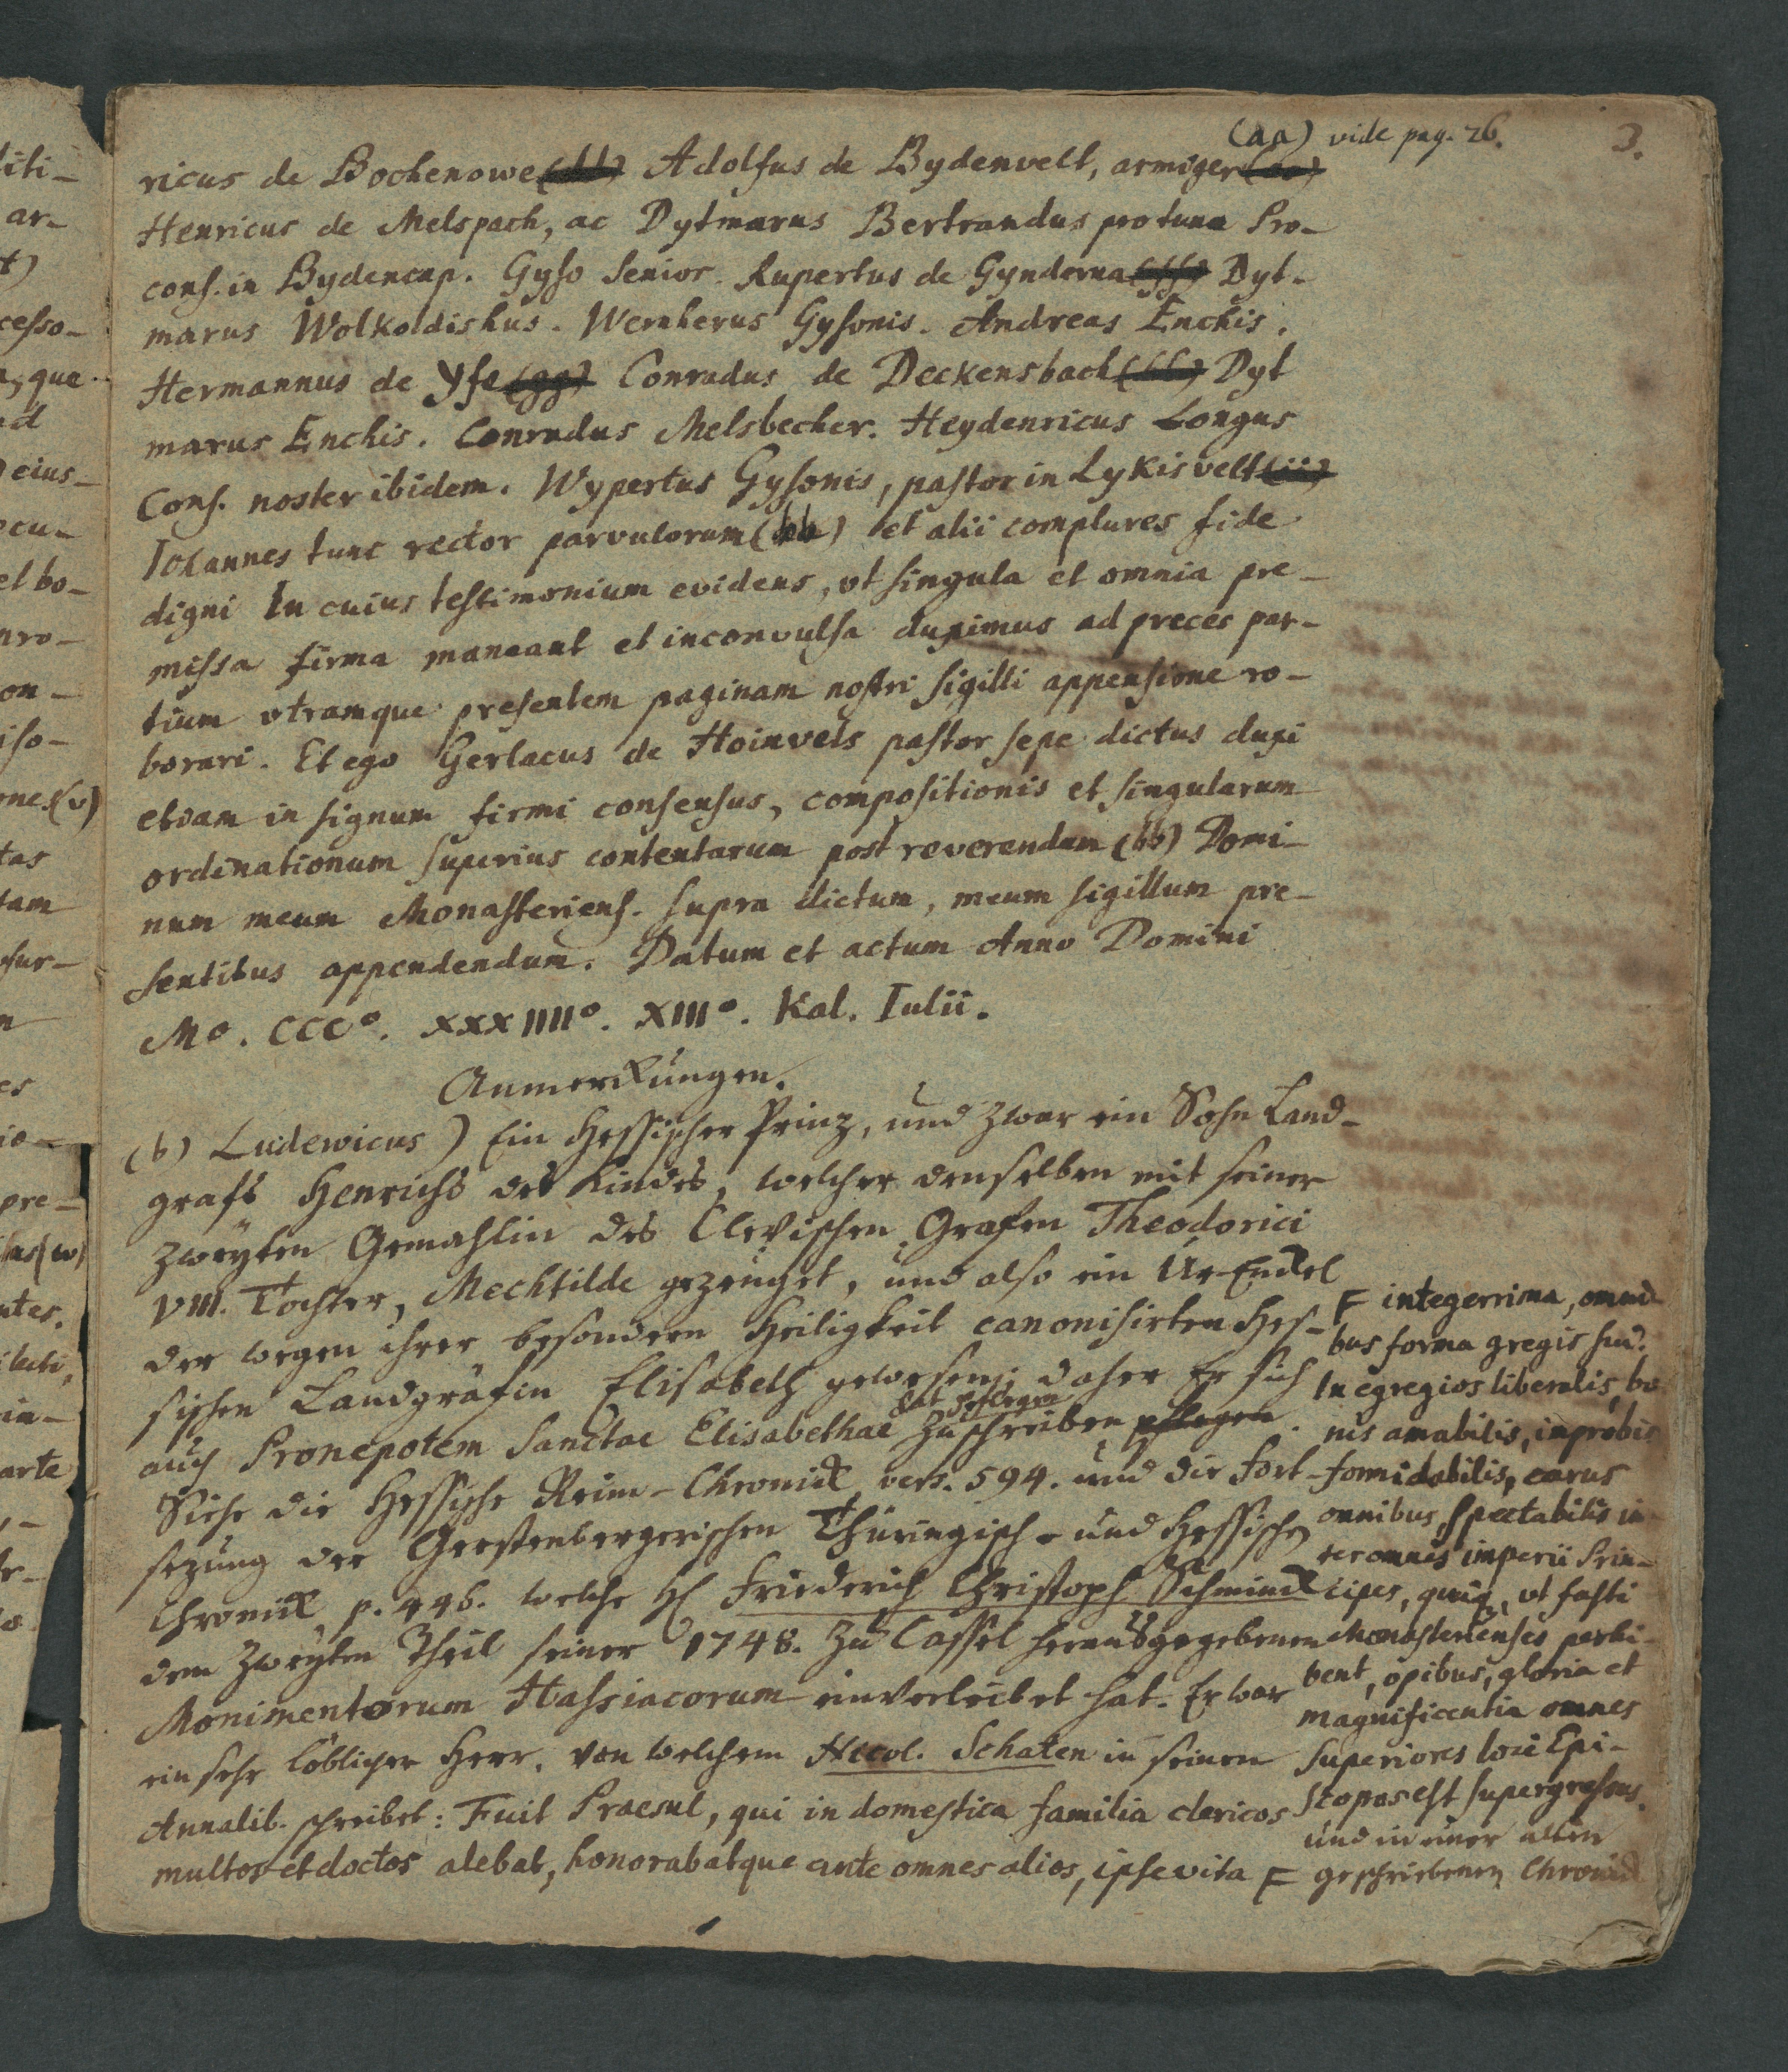 (aa) vide pag. 26.
3.
ricus de Bochenowe (dd) Adolfus de Bydenvelt, armiger (ee)
Henricus de Melspach, ac Dytmarus Bertrandus protunc Pro-
cons. in Bydencap. Gyso Senior. Rupertus de Gynderna (ff) Dyt-
marus Wolkoldishus. Wernherus Gysonis. Andreas Enchis.
Hermannus de Yfe (gg) Conradus de Deckensbach (hh) Dyt
marus Enchis. Conradus Melsbecher. Heydenricus Longus
Cons. noster ibidem. Wypertus Gysonis, pastor in Lykisvelt (ii)
Iohannes tunc rector parvulorum (bb) et alii complures fide
digni In cuius testimonium evidens, vt singula et omnia pre-
missa firma maneant et inconvulsa duximus ad preces par-
tium vtramque presentem paginam nostri sigilli appensione ro-
borari. Et ego Gerlacus de Hoinvels pastor sepe dictus duxi
etiam in signum firmi consensus, compositionis et singularum
ordinationum superius contentarum post reverendum (bb) Domi-
num meum Monasteriens. supra dictum, meum sigillum pre-
sentibus appendendum. Datum et actum Anno Domini
Mo. CCC°. XXXIIII°. XIII°. Kal. Iulii.
Anmerckungen.
(b) Ludewicus) Ein Hessischer Prinz, und zwar ein Sohn Land-
grafs Henrichs des Kindes, welcher denselben mit seiner
zweyten Gemahlin des Clevischen Grafen Theodorici
VIII. Tochter, Mechtilde gezeuget, und also ein Ur-Enckel
der wegen ihrer besondern Heiligkeit canonisirten Hes-
sischen Landgräfin Elisabeth gewesen; daher Er sich
hat pflegen
auch Pronepotem Sanctae Elisabethae zu schreiben pflegen.
Siehe die Hessische Reim-Chronick vers. 594. und die Fort-
sezung der Gerstenbergerischen Thüringisch- und Hessischen
Chronick p. 446. welche H Friederich Christoph Schminck
dem zweyten Theil seiner 1748. zu Cassel herausgegebenen
Monimentorum Hassiacorum einverleibet hat. Er war
ein sehr löblicher Herr, von welchem Nicol. Schaten in seinen
Annalib. schreibet: Fuit Praesul, qui in domestica familia clericos
multos et doctos alebat, honorabatque ante omnes alios, ipse vita F
F integerrima, omni-
bus forma gregis fuit.
In egregios liberalis, bo
nis amabilis, improbis
formidabilis, carus
omnibus, spectabilis in-
ter omnes imperii Prin-
cipes, quiq, vt fasti
Monasterienses perhi-
bent, opibus, gloria et
magnificentia omnes
superiores loci Epi-
scopos est supergressus.
und in einer alten
geschriebenen Chronick
iti-
ar-
t)
cesso-
que
d
eius-
ocu-
et bo-
nro-
on-
iso-
nes (v)
tas
tam
fur-
n
es
io-
pre-
us (w)
ntes.
in-
arte
r-